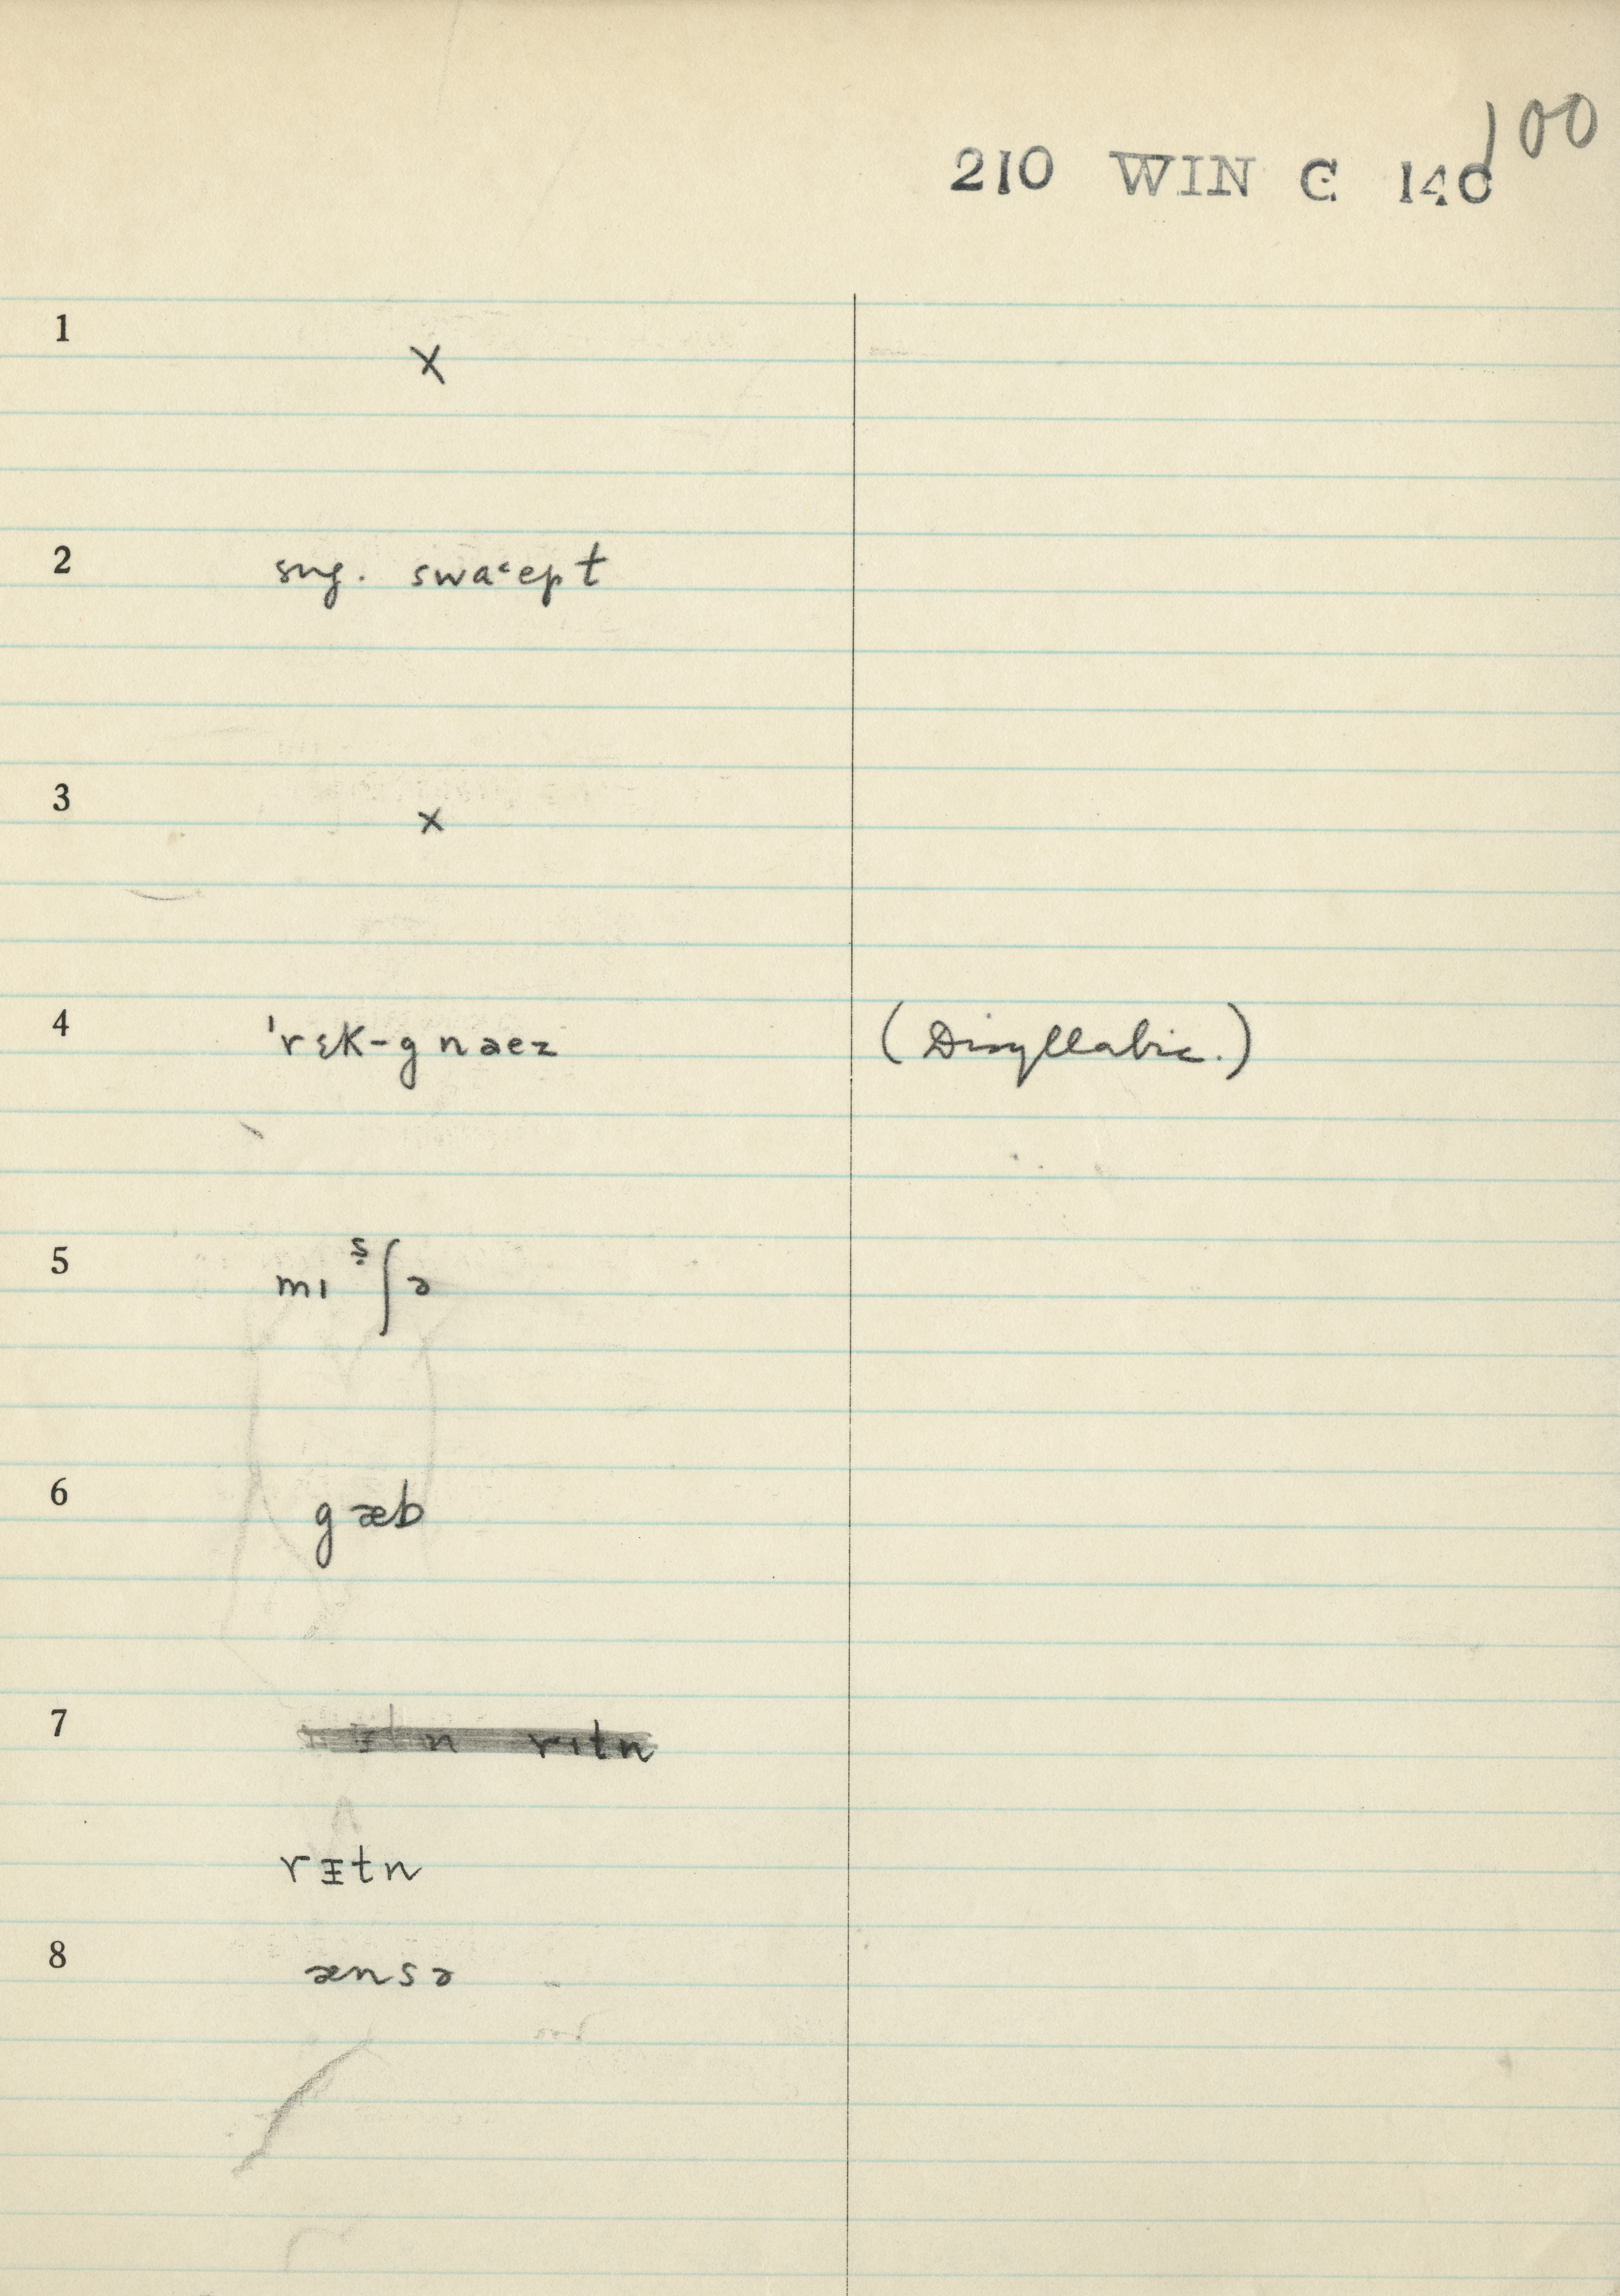 100
210 WIN C 140
1 x
2 sug. swaˁept
3 x
4 'rɛk-gnaez (Disyllabic.)
5 mɪ ʂʃə
6 gæb
7 rɪtn
rᵻtn
8 ænsə